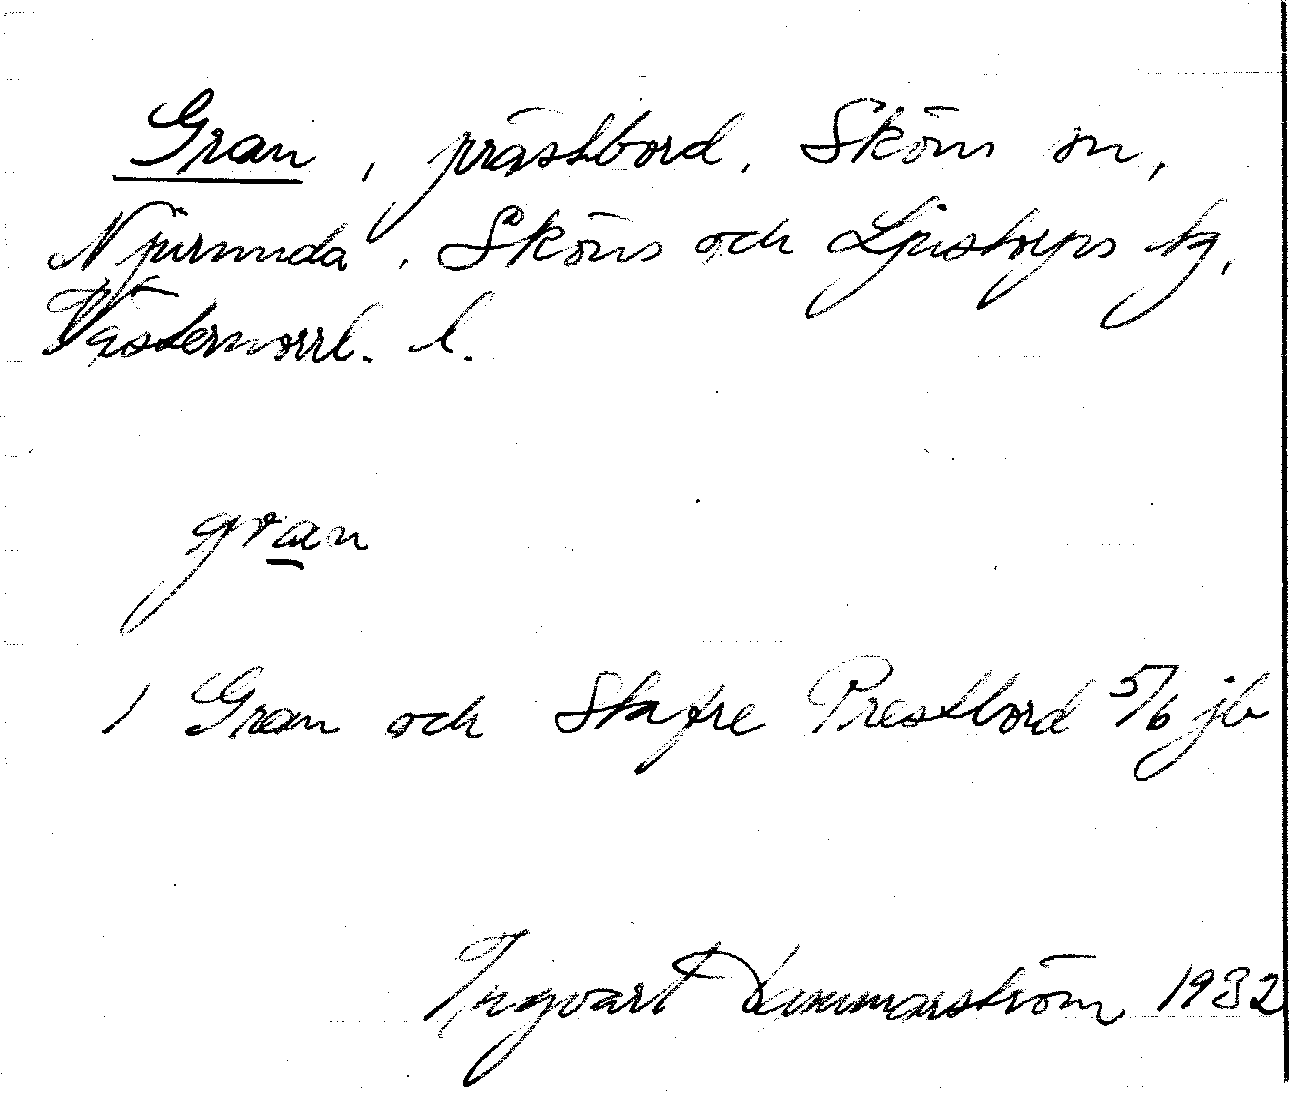 Gran, prästbord, Sköns sn,
Njurunda, Sköns och Ljustorps tg,
Västernorrl. l.
gran
1 Gran och Stafre Prestbord 5/6 jb
Ingvart 1932